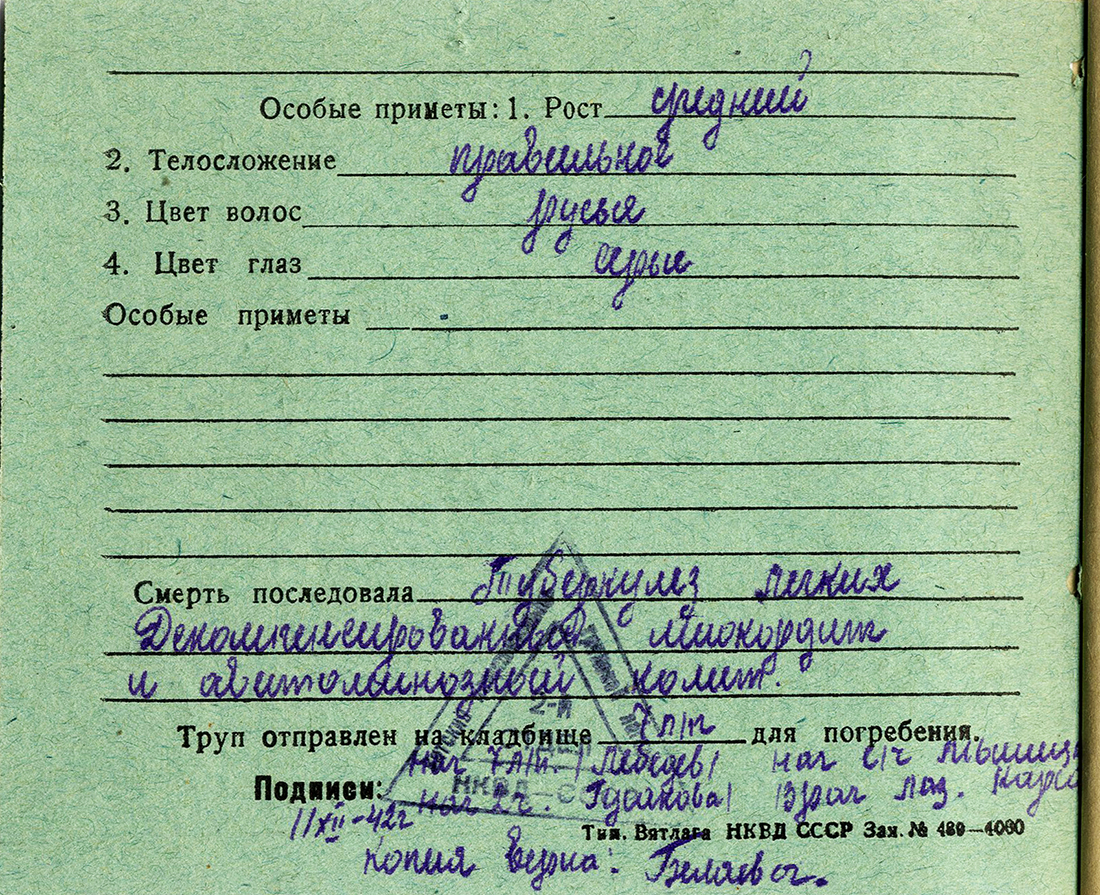 Особые приметы: 1. Рост средний
2. Телосложение правильное
3. Цвет волос русые
4. Цвет глаз серые
Особые приметы
Смерть последовала Туберкулез легких
Декомпенсированный миокордит
и авитоминозный колит.
Труп отправлен на кладбище 7 л/п для погребения.
Нач 7 л/п. /Лебедев/ нач с/ч
Подписи: нач 2ч. Гусакова/ Врач лаз.
11/XII-42г
Тип. Вятлага НКВД СССР Зак. № 480—4000
Копия верна: Беляева.
2-й
НКВД